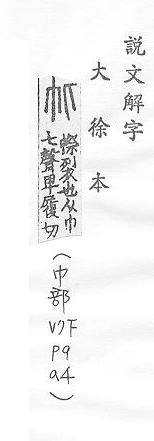 說文解字
大徐本
㡜裂也从巾
匕聲卑履切
（巾部V7下P9a4）